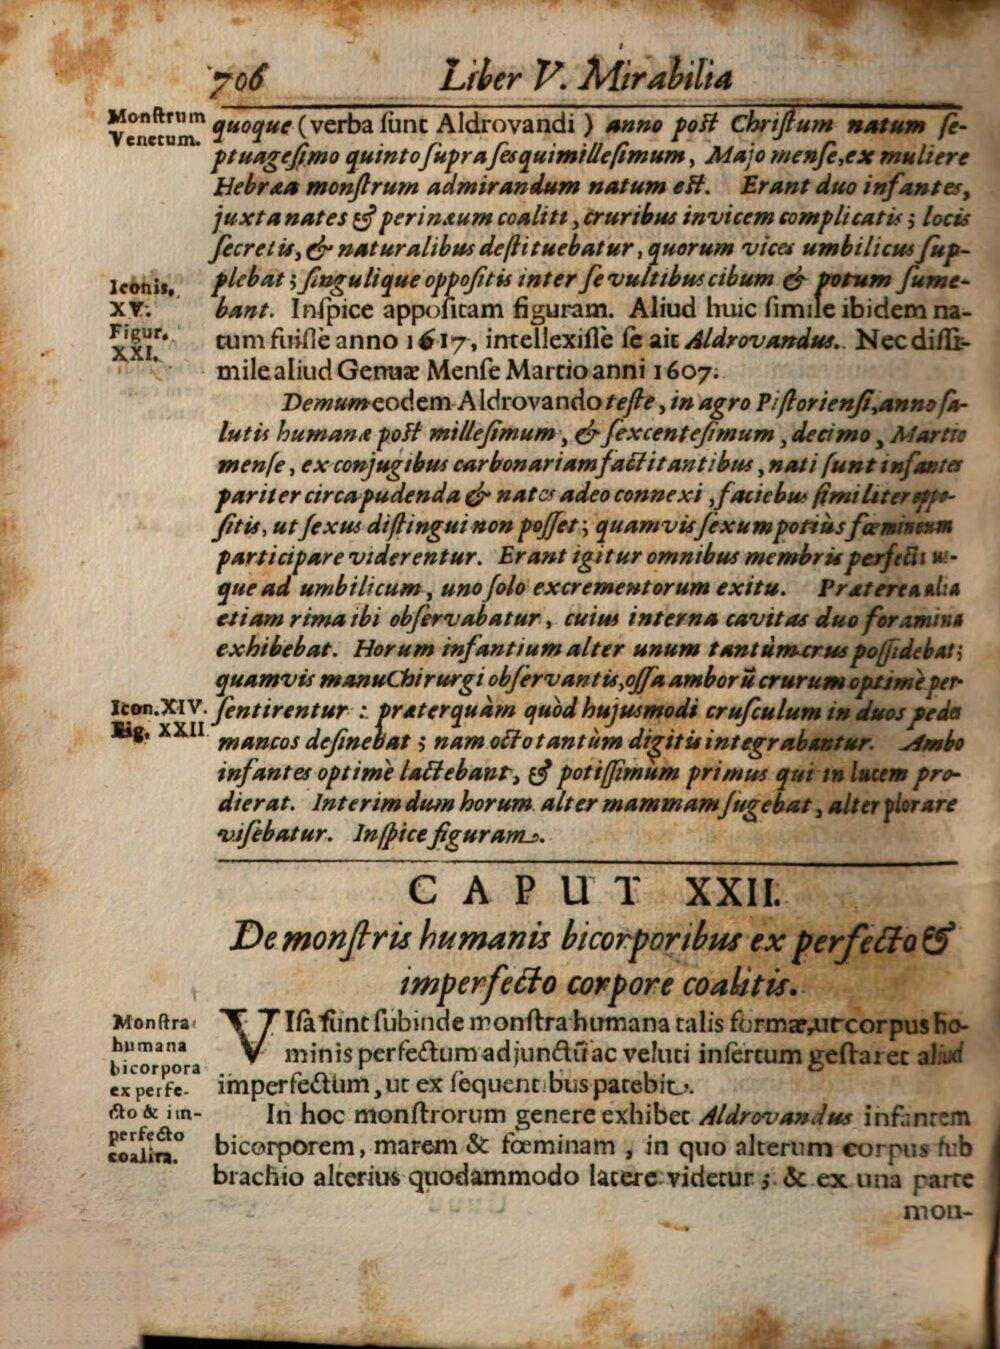 706 Liber V. Mirabilia
Monſtrum
Venetum.
quoque (verba ſunt Aldrovandi) anno poſt Chriſtum natum ſe-
ptuageſimo quinto ſupra ſesquimilleſimum, Majo menſe, ex muliere
Hebræa monſtrum admirandum natum eſt. Erant duo infantes,
juxta nates & perinæum coaliti, cruribus invicem complicatis; locis
ſecretis, & naturalibus deſtituebatur, quorum vices umbilicus ſup-
plebat; ſingulique oppoſitis inter ſe vultibus cibum & potum ſume-
Iconis.
XV.
Figur.
XXI.
bant. Inſpice appoſitam figuram. Aliud huic ſimile ibidem na-
tum fuiſſe anno 1617, intellexiſſe ſe ait Aldrovandus. Nec diſſi-
mile aliud Genuæ Menſe Martio anni 1607.
Demum eodem Aldrovando teſte, in agro Piſtorienſi, anno ſa-
lutis humanæ poſt milleſimum, & ſexcenteſimum, decimo, Martio
menſe, ex conjugibus carbonariam factitantibus, nati ſunt infantes
pariter circa pudenda & nates adeo connexi, faciebus ſimiliter oppo-
ſitis, ut ſexus diſtingui non poſſet; quamvis ſexum potiùs fœmineum
participare viderentur. Erant igitur omnibus membris perfecti us-
que ad umbilicum, uno ſolo excrementorum exitu. Præterea alia
etiam rima ibi obſervabatur, cuius interna cavitas duo foramina
exhibebat. Horum infantium alter unum tantùm crus poſſidebat;
quamvis manu Chirurgi obſervantis, oſſa amborũ crurum optimè per-
Icon. XIV.
Fig. XXII
ſentirentur: præterquàm quòd hujusmodi cruſculum in duos pedes
mancos deſinebat; nam octo tantùm digitis integrabantur. Ambo
infantes optimè lactebant, & potiſſimùm primus qui in lucem pro-
dierat. Interim dum horum alter mammam ſugebat, alter plorare
viſebatur. Inſpice figuram.
CAPUT XXII.
De monſtris humanis bicorporibus ex perfecto &
imperfecto corpore coalitis.
Monſtra
humana
bicorpora
ex perfe-
cto & im-
perfecto
coalita.
VIſa ſunt ſubinde monſtra humana talis formæ, ut corpus ho-
minis perfectum adjunctũ ac veluti inſertum geſtaret aliud
imperfectum, ut ex ſequentibus patebit.
In hoc monſtrorum genere exhibet Aldrovandus infantem
bicorporem, marem & fœminam, in quo alterum corpus ſub
brachio alterius quodammodo latere videtur; & ex una parte
mon-